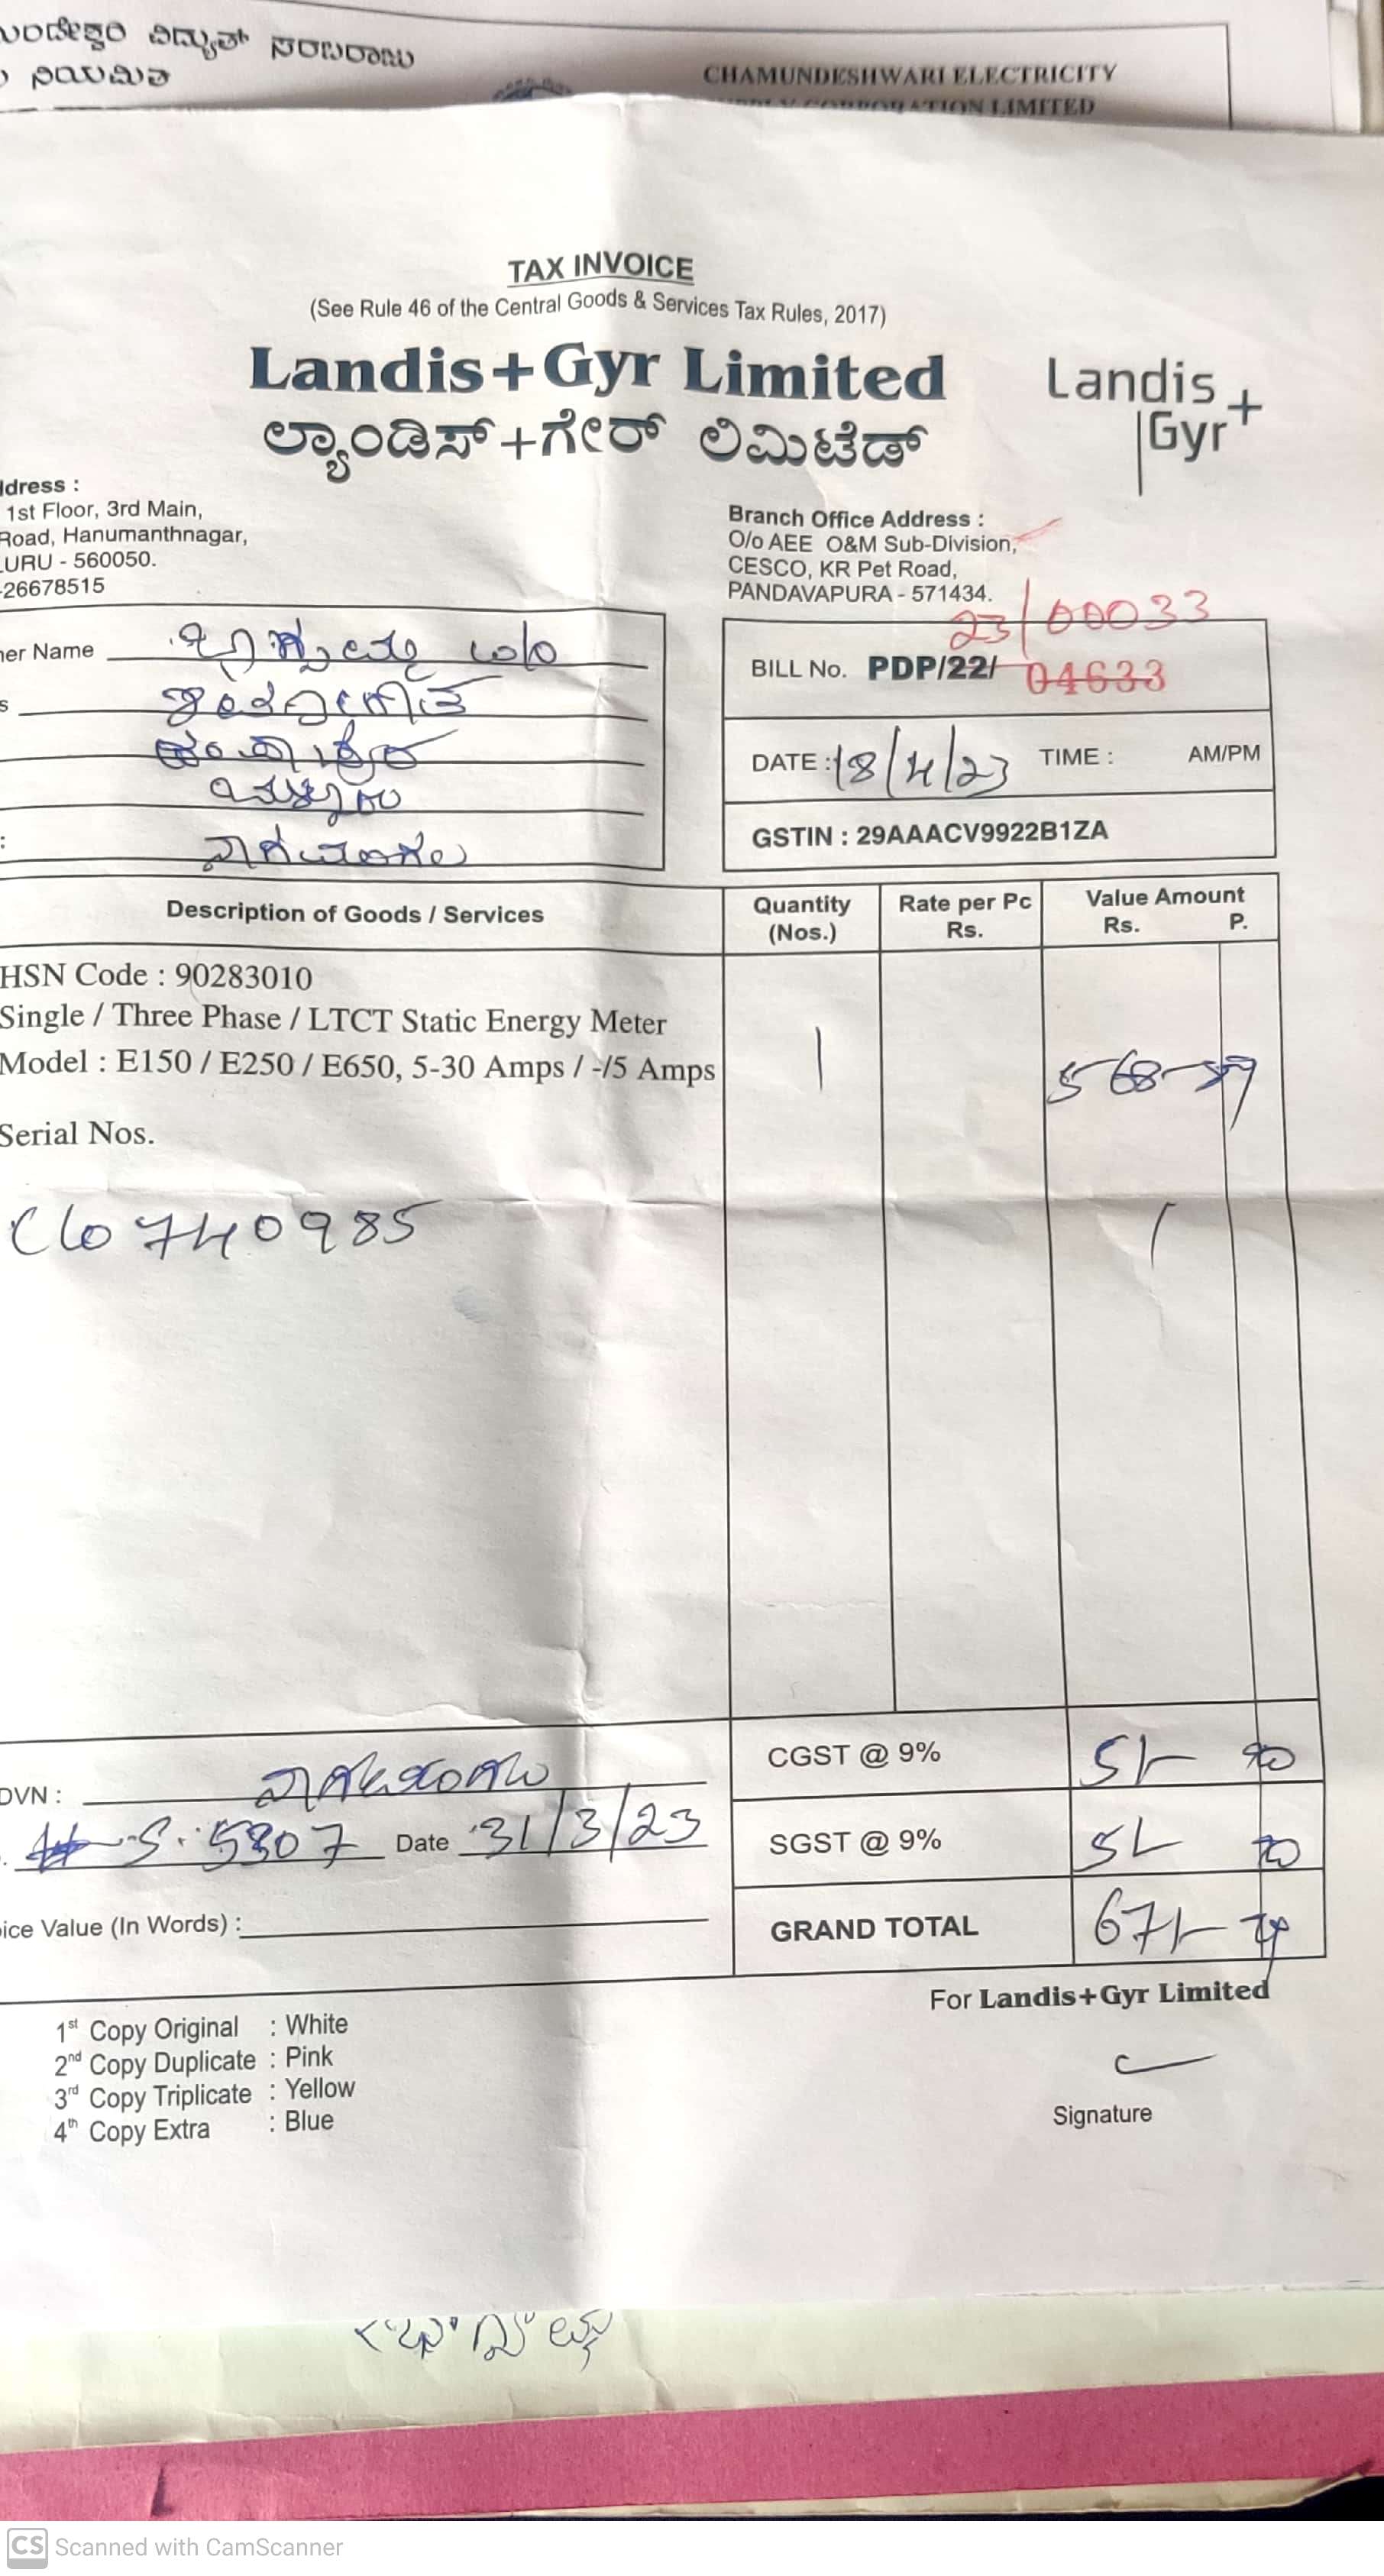 ವಿದ್ಯುತ್ ಸರಬರಾಜು
ನಿಯಮಿತ
CHAMUNDESHWARI ELECTRICITY
CORPORATION LIMITED
TAX INVOICE
(See Rule 46 of the Central Goods & Services Tax Rules, 2017)
Landis+Gyr Limited
ಲ್ಯಾಂಡಿಸ್+ಗೇರ್ ಲಿಮಿಟೆಡ್
Landis+
Gyr
dress :
1st Floor, 3rd Main,
Road, Hanumanthnagar,
URU - 560050.
-26678515
Branch Office Address :
O/o AEE O&M Sub-Division,
CESCO, KR Pet Road,
PANDAVAPURA - 571434.
er Name
23/00033
BILL No. PDP/22/ 04633
DATE : 18/4/23 TIME : AM/PM
GSTIN : 29AAACV9922B1ZA
ನಾಗಮಂಗಲ
Description of Goods / Services Quantity (Nos.) Rate per Pc Rs. Value Amount Rs. P.
HSN Code : 90283010
Single / Three Phase / LTCT Static Energy Meter
Model : E150 / E250 / E650, 5-30 Amps / -/5 Amps 1 568-
Serial Nos.
740985
CGST @ 9% 51-
DVN : ನಾಗಮಂಗಲ
5307 Date 31/3/23
SGST @ 9% 51
ice Value (In Words) :
GRAND TOTAL 671-
For Landis+Gyr Limited
1st Copy Original : White
2nd Copy Duplicate : Pink
3rd Copy Triplicate : Yellow
4th Copy Extra : Blue
Signature
CS Scanned with CamScanner